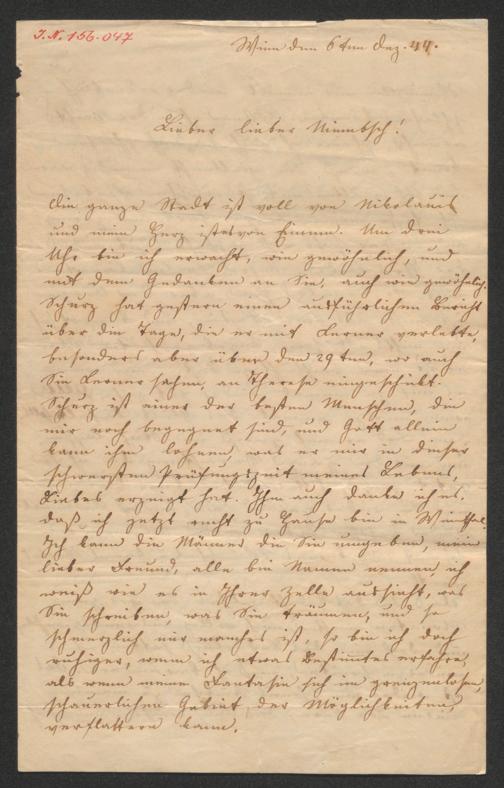 J.N. 156.047
Wien den 6ten Dez. 44.
Lieber lieber Niembsch!
Die ganze Stadt ist voll von Nikolauis
und mein Herz ist es von Einem. Um drei
Uhr bin ich erwacht, wie gewöhnlich, und
mit dem Gedanken an Sie, auch wie gewöhnlich.
Schurz hat gestern einen ausführlichen Bericht
über die Tage, die er mit Kerner verlebte,
besonders aber über den 29ten, wo auch
Sie Kerner sahen, an Therese eingeschickt.
Schurz ist einer der besten Menschen, die
mir noch begegnet sind, und Gott allein
kann ihm lohnen, was er mir in dieser
schwersten Prüfungszeit meines Lebens,
Liebes erzeigt hat. Ihm auch danke ich es,
daß ich jetzt recht zu Hause bin in
Ich kann die Männer die Sie umgeben, mein
lieber Freund, alle bei Namen nennen, ich
weiß wie es in Ihrer Zelle aussieht, was
Sie schreiben, was Sie träumen, und so
schmerzlich mir manches ist, so bin ich doch
ruhiger, wenn ich etwas Bestimmtes erfahre,
als wenn meine Fantasie sich im grenzenlosen,
schauerlichen Gebiet der Möglichkeiten,
verflattern kann.